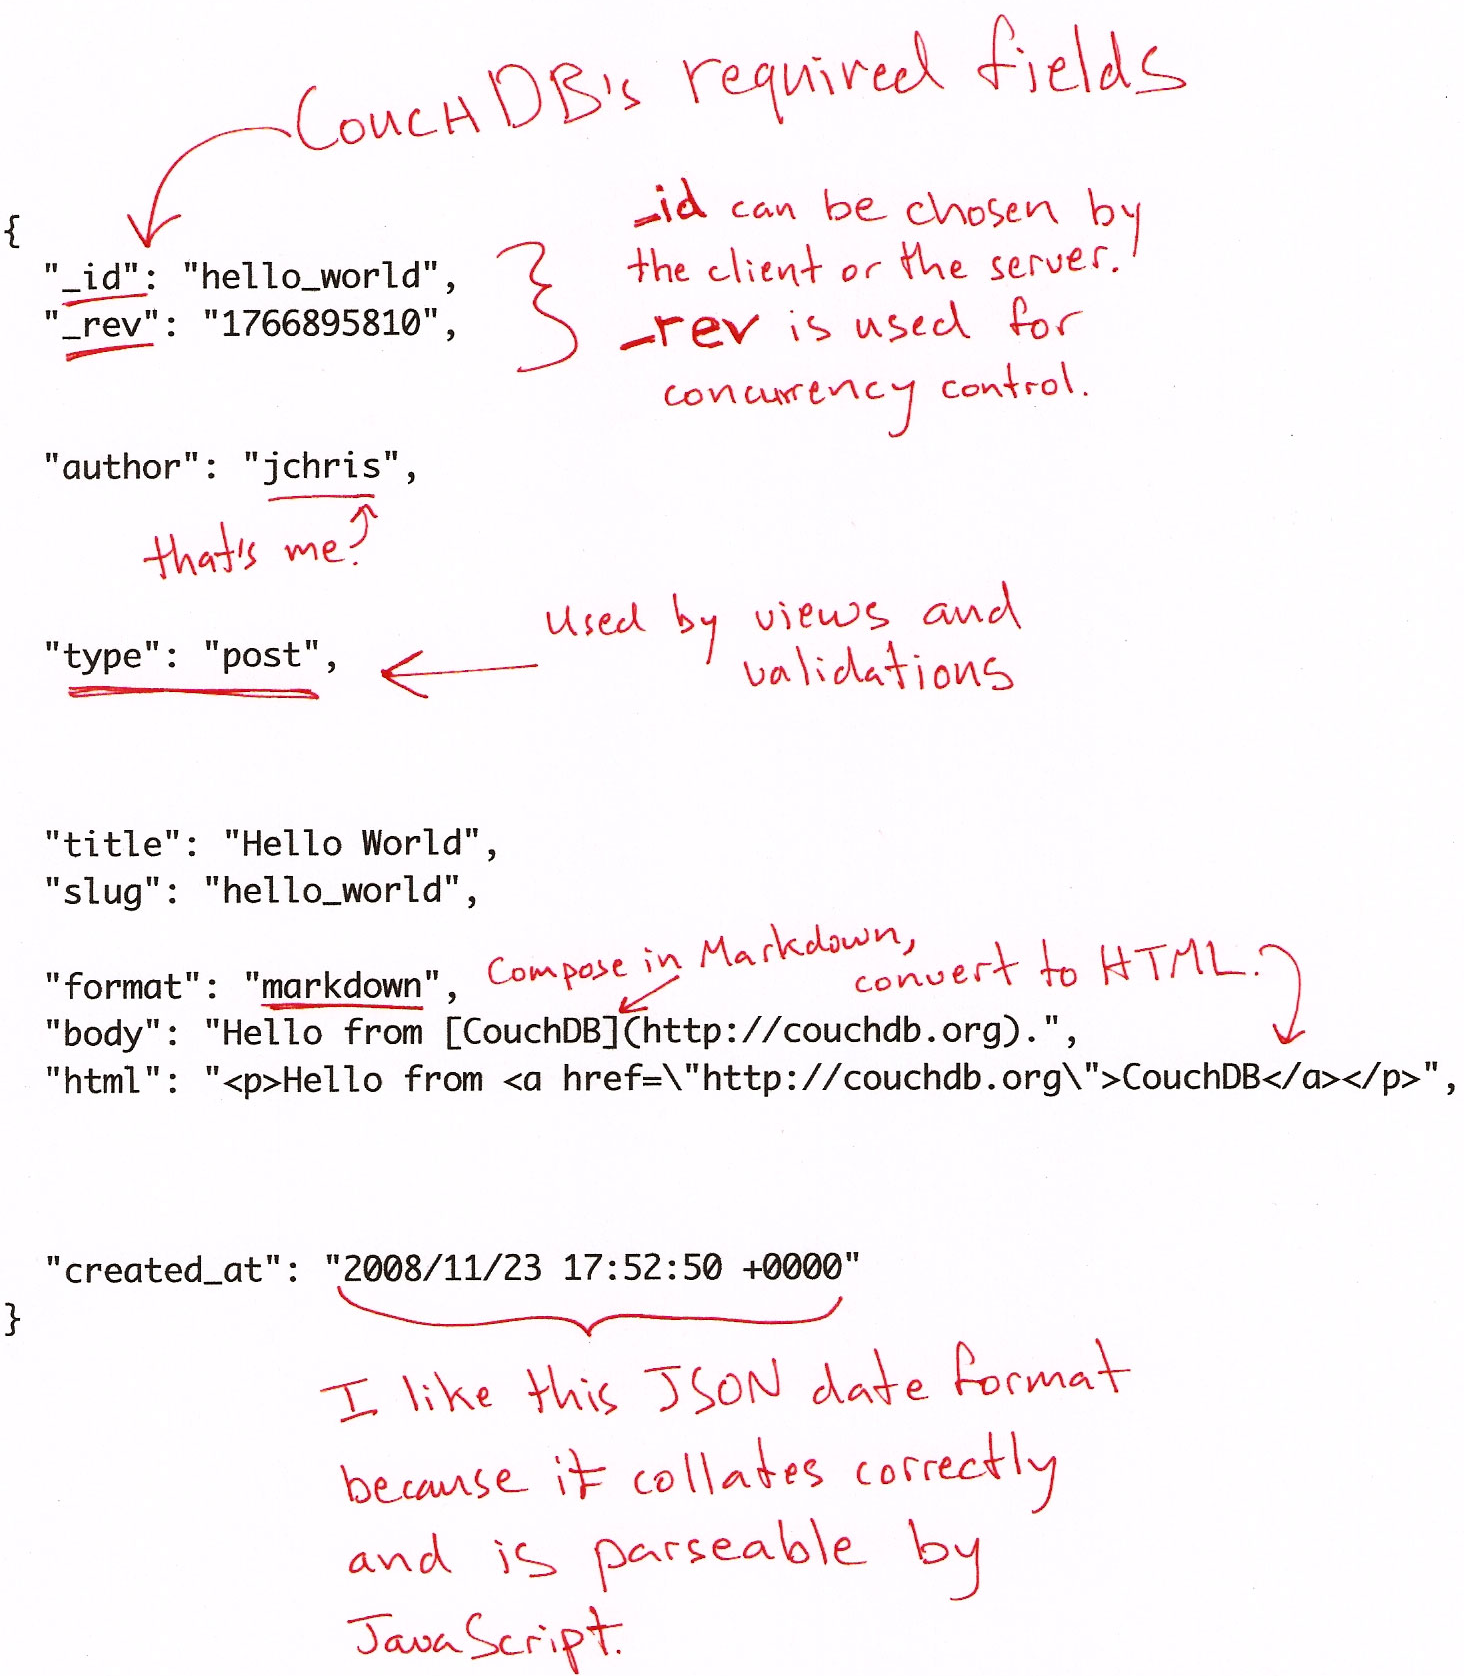 CouchDB's required fields
{
_id can be chosen by
the client or the server.
"_id": "hello_world",
"_rev": "1766895810",
_rev is used for
concurrency control.
"author": "jchris",
that's me!
"type": "post",
used by views and
validations
"title": "Hello World",
"slug": "hello_world",
"format": "markdown",
Compose in Markdown,
convert to HTML.
"body": "Hello from [CouchDB](http://couchdb.org).",
"html": "<p>Hello from <a href=\"http://couchdb.org\">CouchDB</a></p>",
"created_at": "2008/11/23 17:52:50 +0000"
}
I like this JSON date format
because it collates correctly
and is parseable by
JavaScript.